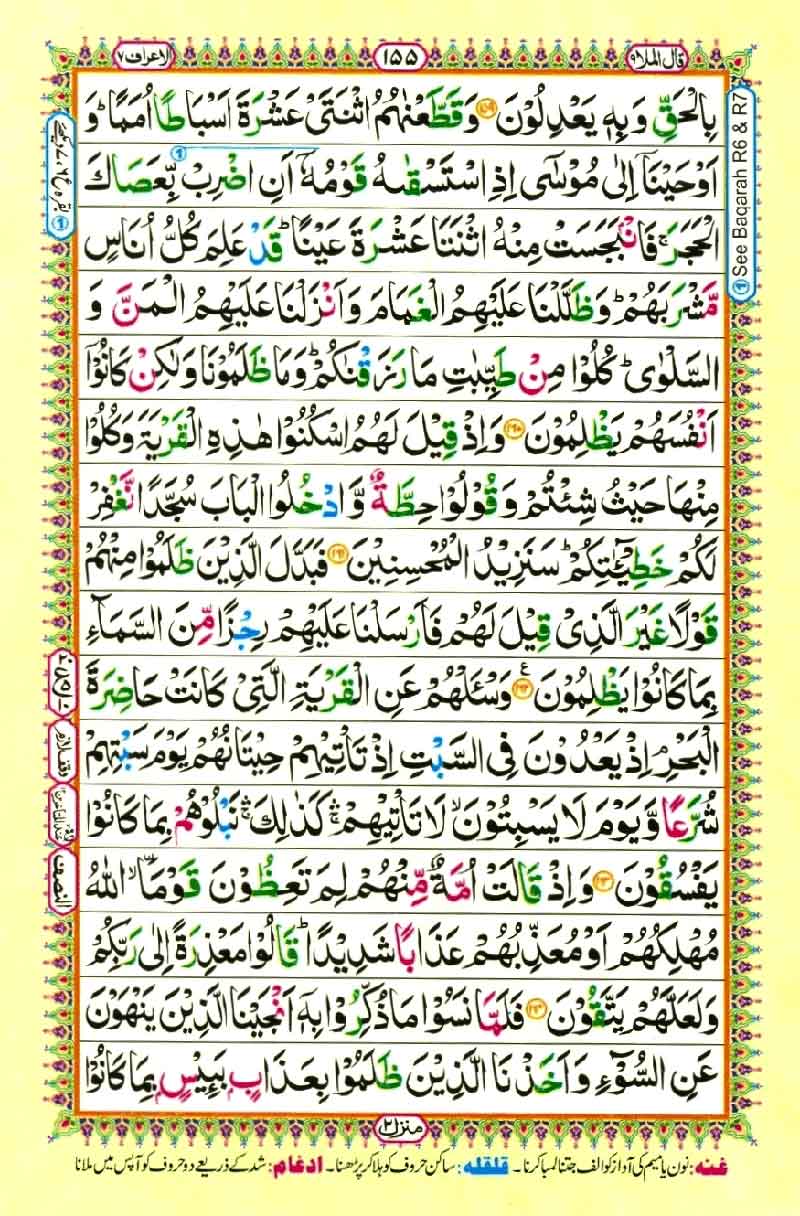 قال الملا ٩
١٥٥
الاعراف ٧
بِالْحَقِّ وَبِهٖ يَعْدِلُوْنَ ﴿١٥٩﴾ وَقَطَّعْنٰهُمُ اثْنَتَيْ عَشْرَةَ اَسْبَاطًا اُمَمًا ؕ وَ
اَوْحَيْنَاۤ اِلٰى مُوْسٰٓى اِذِ اسْتَسْقٰىهُ قَوْمُهٗۤ اَنِ اضْرِبْ بِّعَصَاكَ
الْحَجَرَ ۚ فَانْۢبَجَسَتْ مِنْهُ اثْنَتَا عَشْرَةَ عَيْنًا ؕ قَدْ عَلِمَ كُلُّ اُنَاسٍ
مَّشْرَبَهُمْ ؕ وَظَلَّلْنَا عَلَيْهِمُ الْغَمَامَ وَاَنْزَلْنَا عَلَيْهِمُ الْمَنَّ وَ
السَّلْوٰى ؕ كُلُوْا مِنْ طَيِّبٰتِ مَا رَزَقْنٰكُمْ ؕ وَمَا ظَلَمُوْنَا وَلٰكِنْ كَانُوْۤا
اَنْفُسَهُمْ يَظْلِمُوْنَ ﴿١٦٠﴾ وَاِذْ قِيْلَ لَهُمُ اسْكُنُوْا هٰذِهِ الْقَرْيَةَ وَكُلُوْا
مِنْهَا حَيْثُ شِئْتُمْ وَقُوْلُوْا حِطَّةٌ وَّادْخُلُوا الْبَابَ سُجَّدًا نَّغْفِرْ
لَكُمْ خَطِيْٓـٰٔتِكُمْ ؕ سَنَزِيْدُ الْمُحْسِنِيْنَ ﴿١٦١﴾ فَبَدَّلَ الَّذِيْنَ ظَلَمُوْا مِنْهُمْ
قَوْلًا غَيْرَ الَّذِيْ قِيْلَ لَهُمْ فَاَرْسَلْنَا عَلَيْهِمْ رِجْزًا مِّنَ السَّمَآءِ
بِمَا كَانُوْا يَظْلِمُوْنَ ﴿١٦٢﴾ وَسْـَٔلْهُمْ عَنِ الْقَرْيَةِ الَّتِيْ كَانَتْ حَاضِرَةَ
الْبَحْرِ ۘ اِذْ يَعْدُوْنَ فِي السَّبْتِ اِذْ تَاْتِيْهِمْ حِيْتَانُهُمْ يَوْمَ سَبْتِهِمْ
شُرَّعًا وَّيَوْمَ لَا يَسْبِتُوْنَ ۙ لَا تَاْتِيْهِمْ ۛۚ كَذٰلِكَ ۛۚ نَبْلُوْهُمْ بِمَا كَانُوْا
يَفْسُقُوْنَ ﴿١٦٣﴾ وَاِذْ قَالَتْ اُمَّةٌ مِّنْهُمْ لِمَ تَعِظُوْنَ قَوْمَا ۙ اللّٰهُ
مُهْلِكُهُمْ اَوْ مُعَذِّبُهُمْ عَذَابًا شَدِيْدًا ؕ قَالُوْا مَعْذِرَةً اِلٰى رَبِّكُمْ
وَلَعَلَّهُمْ يَتَّقُوْنَ ﴿١٦٤﴾ فَلَمَّا نَسُوْا مَا ذُكِّرُوْا بِهٖۤ اَنْجَيْنَا الَّذِيْنَ يَنْهَوْنَ
عَنِ السُّوْٓءِ وَاَخَذْنَا الَّذِيْنَ ظَلَمُوْا بِعَذَابٍۭ بَـِٔيْسٍۭ بِمَا كَانُوْا
① See Baqarah R6 & R7
النصف
منزل ٢
غنه: نون یا میم کی آواز کو الف جتنا لمبا کرنا۔ قلقله: ساکن حروف کو ہلا کر پڑھنا۔ ادغام: شد کے ذریعے دو حروف کو آپس میں ملانا